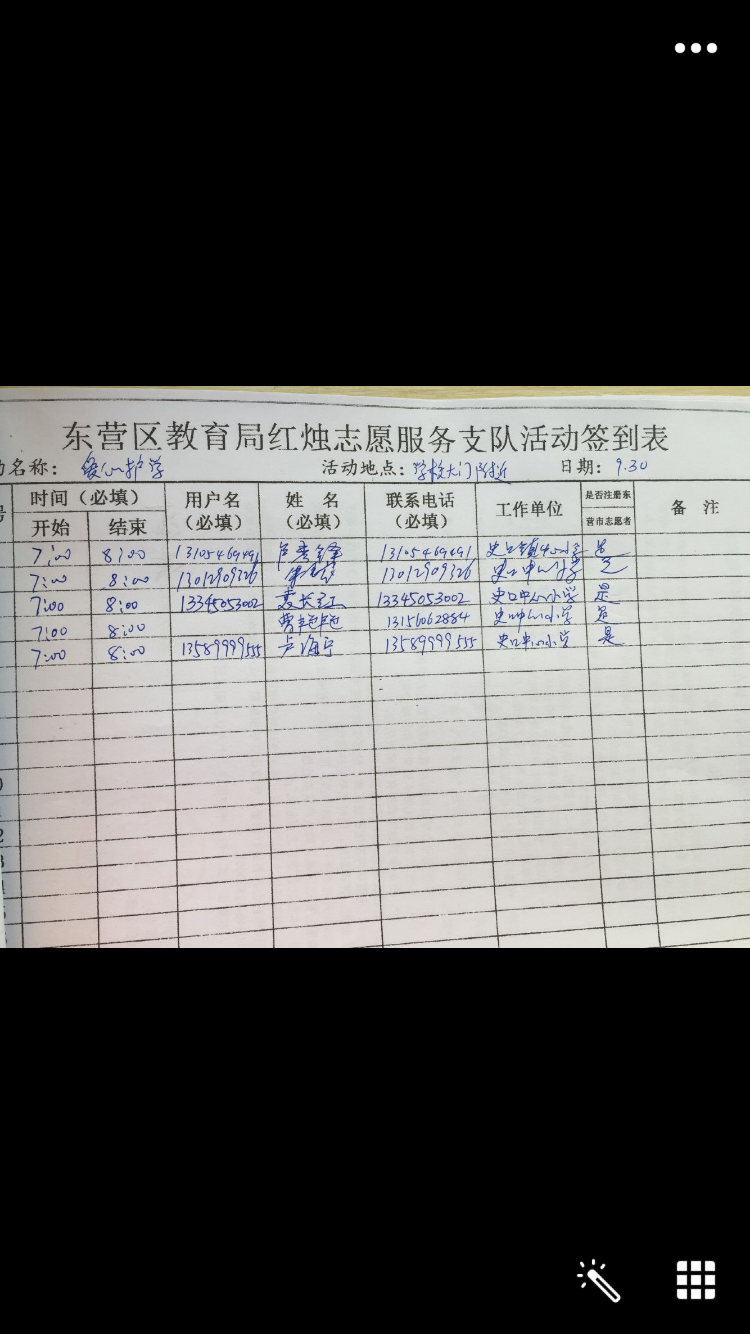 东营区教育局红烛志愿服务支队活动签到表
名称: 爱心护学 活动地点: 学校大门附近 日期: 9.30
时间(必填) 用户名 姓名 联系电话 工作单位 是否注册东 备注
开始 结束 (必填) (必填) (必填) 营市志愿者
7:00 8:00 13105469491 13105469491 史口镇中心小学 是
7:00 8:00 13012909326 13012909326 史口中心小学 是
7:00 8:00 13345053002 13345053002 史口中心小学 是
7:00 8:00 曹艳艳 13156062884 史口中心小学 是
7:00 8:00 13589999555 卢海宁 13589999555 史口中心小学 是